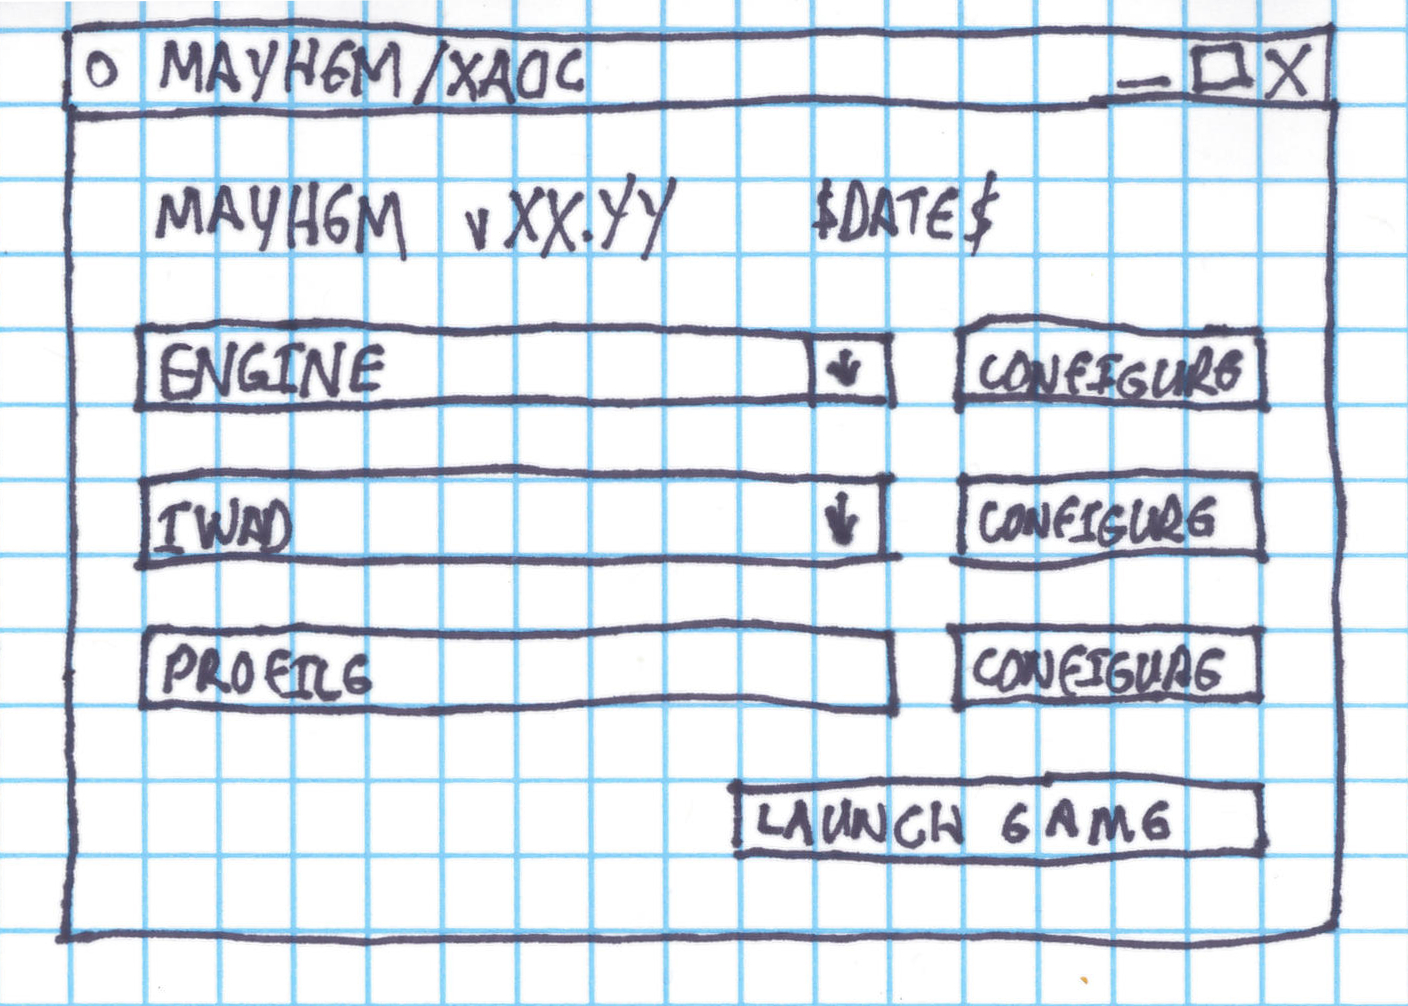 O MAYHEM/XAOC _ □ X
MAYHEM vXX.YY $DATE$
ENGINE ↓ CONFIGURE
IWAD ↓ CONFIGURE
PROFILE CONFIGURE
LAUNCH GAME